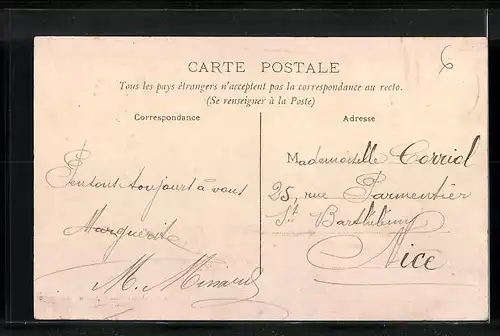 6
CARTE POSTALE
Tous les pays étrangers n'acceptent pas la correspondance au recto.
(Se renseigner à la Poste)
Correspondance
Adresse
Pensons toujours à vous
Marguerite
M. Minaud
Mademoiselle Corriol
25, rue Parmentier
St Barthélemy
Nice